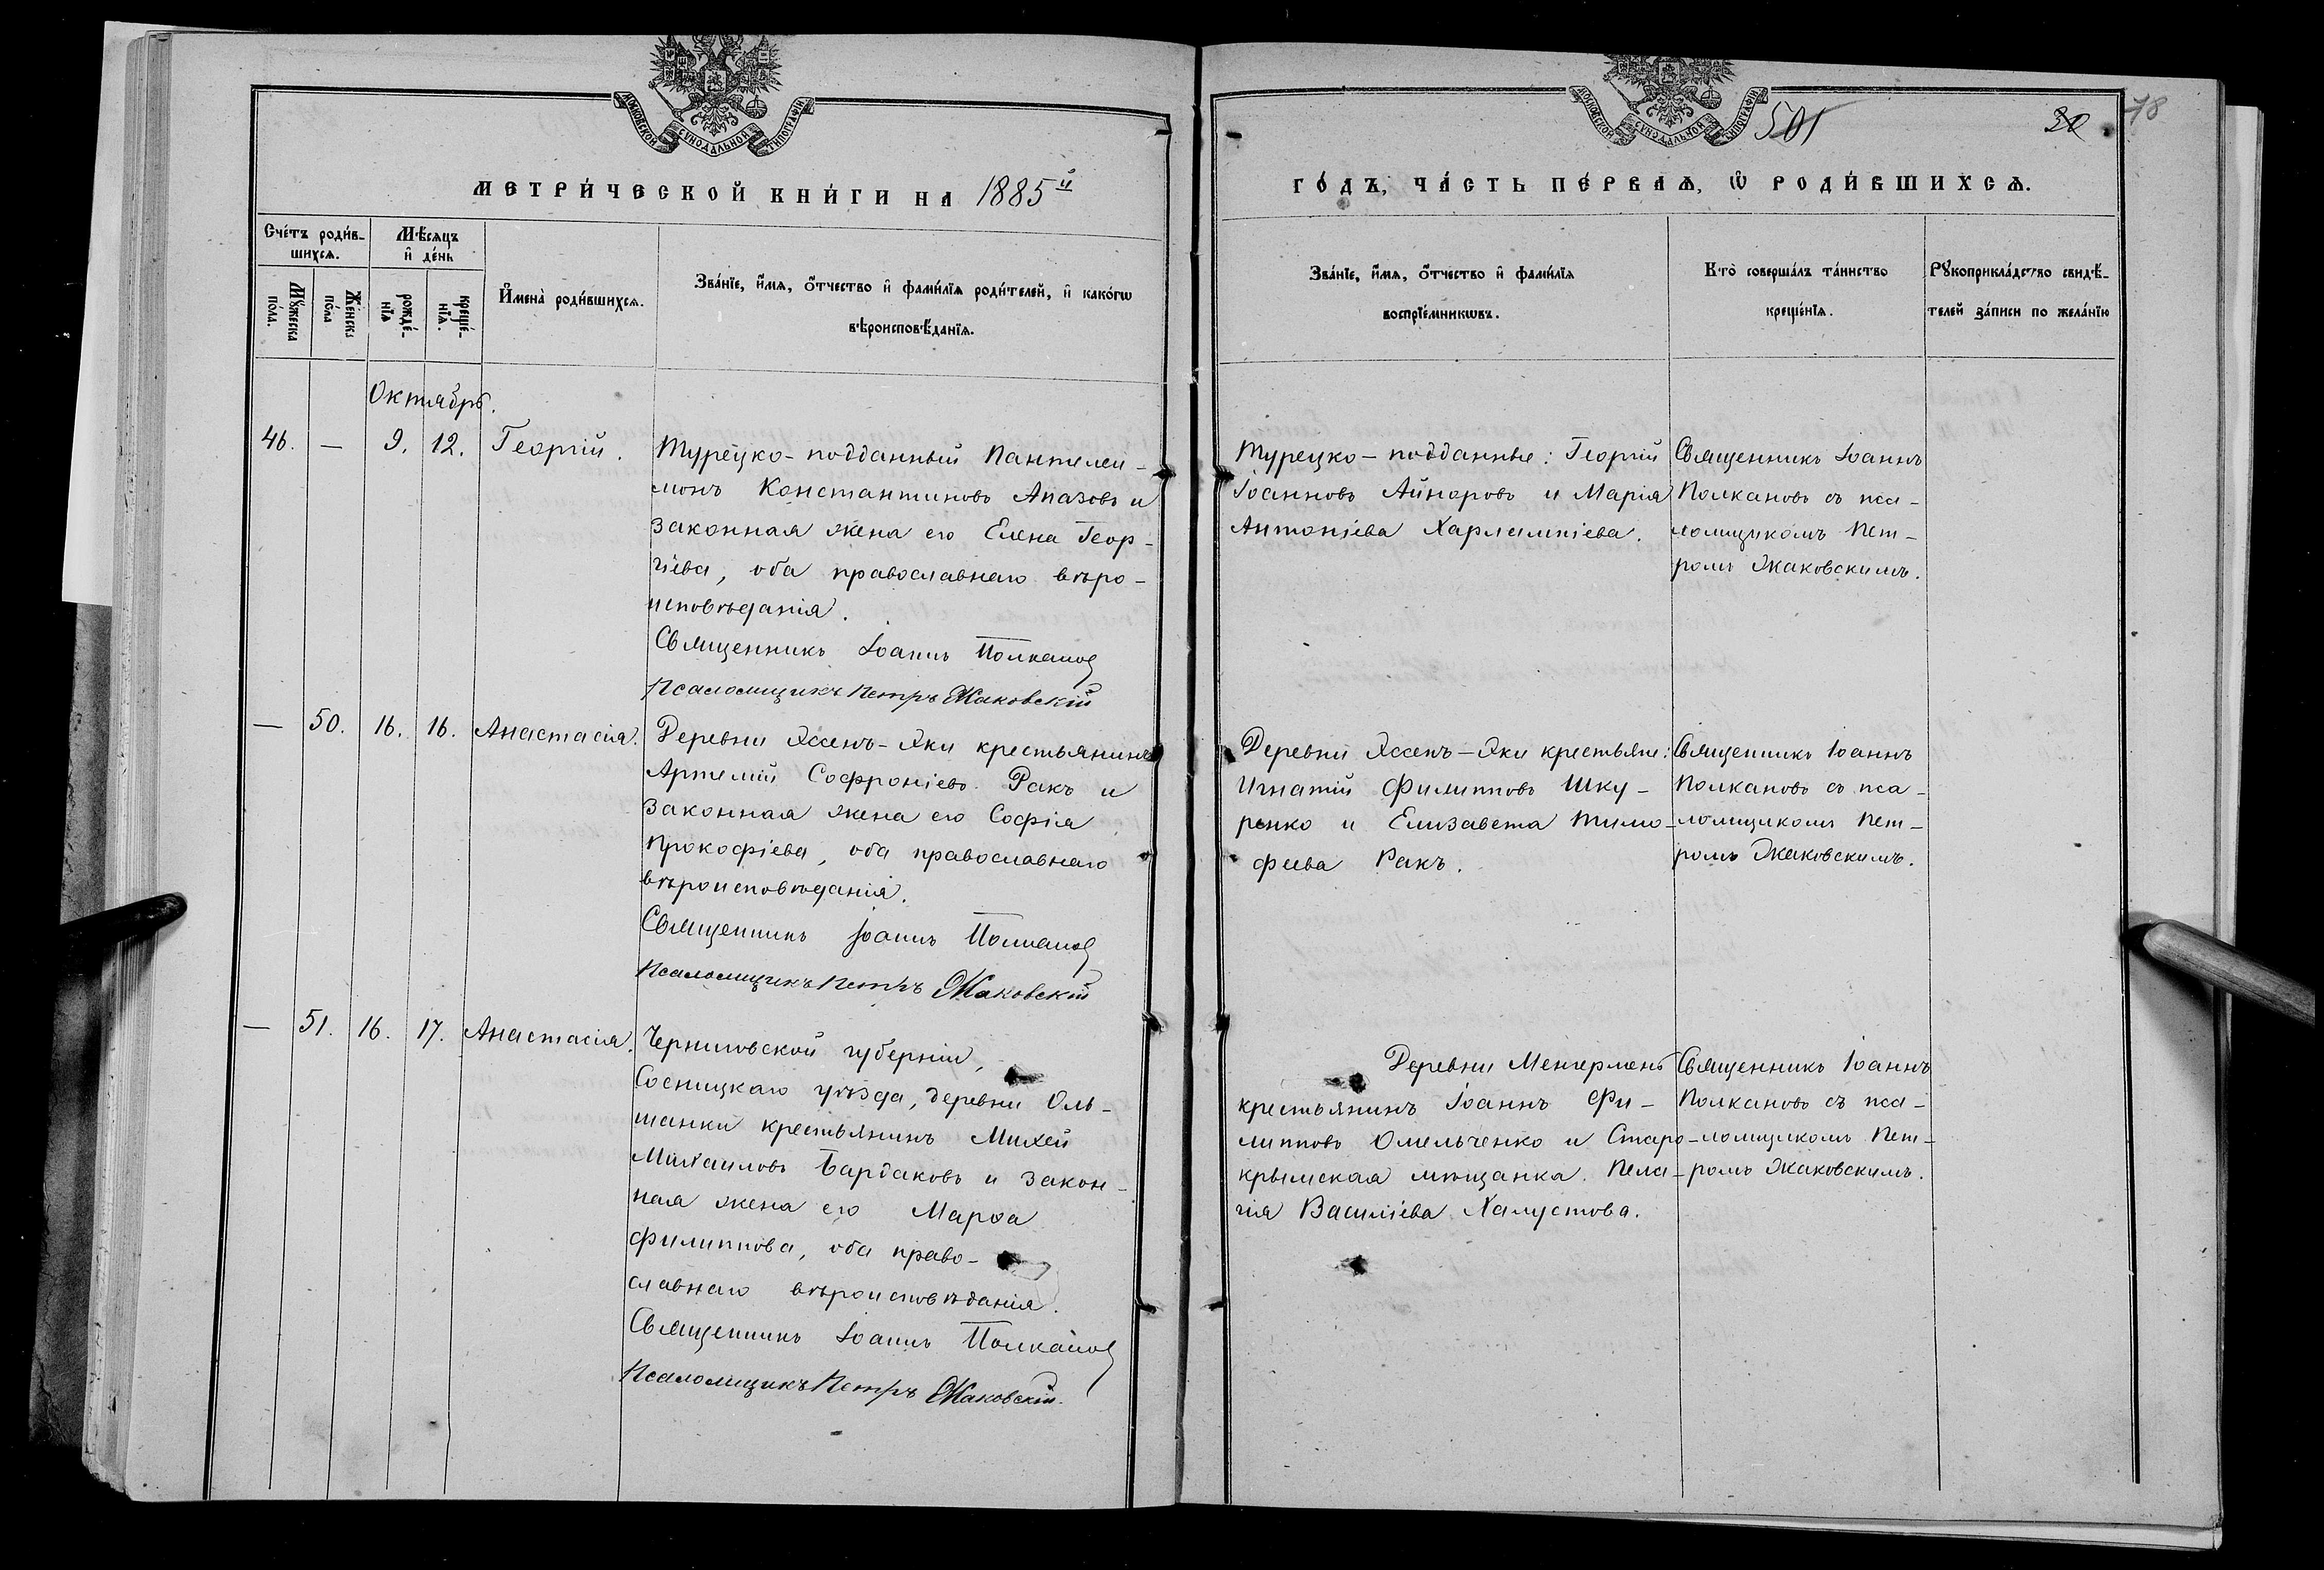 МОСКОВСКОЙ СѴНОДАЛЬНОЙ ТИПОГРАФІИ
МЕТРИ́ЧЕСКОЙ КНИ́ГИ НА 1885й
Сче́тъ роди́в-
шихсѧ.
Мѣ́сѧцъ
и҆ де́нь
И҆мена̀ роди́вшихсѧ.
Зва́нїе, и҆́мѧ, ѻ҆́тчество и҆ фами́лїѧ роди́телей, и҆ како́гѡ
вѣроисповѣ́данїѧ.
Мꙋ́жеска
по́ла.
Же́нска
по́ла
рожде́-
нїѧ
креще́-
нїѧ.
Октябрь.
46. — 9. 12. Георгій. Турецко-подданный Пантелеи-
монъ Константиновъ Апазовъ и
законная жена его Елена Геор-
гіева, оба православнаго вѣро-
исповѣданія.
Священникъ Іоаннъ Полканов
Псаломщикъ Петръ Жаковскій
— 50. 16. 16. Анастасія. Деревни Эссенъ-Эки крестьянинъ
Артемій Софроніевъ Ракъ и
законная жена его Софія
Прокофіева, оба православнаго
вѣроисповѣданія.
Священникъ Іоаннъ Полканов
Псаломщикъ Петръ Жаковскій
— 51. 16. 17. Анастасія. Черниговской губерніи,
Сосницкаго уѣзда, деревни Оль-
шанки крестьянинъ Михей
Михаиловъ Бардаковъ и закон-
ная жена его Марѳа
Филиппова, оба право-
славнаго вѣроисповѣданія.
Священникъ Іоаннъ Полканов
Псаломщикъ Петръ Жаковскій.
МОСКОВСКОЙ СѴНОДАЛЬНОЙ ТИПОГРАФІИ
501 30 78
ГО́ДЪ, ЧА́СТЬ ПЕ́РВАѦ, Ѡ҆ РОДИ́ВШИХСѦ.
Зва́нїе, и҆́мѧ, ѻ҆́тчество и҆ фами́лїѧ
воспрїе́мникѡвъ.
Кто̀ соверша́лъ та́инство
креще́нїѧ.
Рꙋкоприкла́дство свидѣ́-
телей за́писи по жела́нїю
Турецко-подданные: Георгій
Іоанновъ Айноровъ и Марія
Антоніева Харлампіева.
Священникъ Іоаннъ
Полкановъ съ пса-
ломщикомъ Пет-
ромъ Жаковскимъ.
Деревни Эссенъ-Эки крестьяне:
Игнатій Филипповъ Шку-
ренко и Елизавета Тимо-
феева Ракъ.
Священникъ Іоаннъ
Полкановъ съ пса-
ломщикомъ Пет-
ромъ Жаковскимъ.
Деревни Менгермень
крестьянинъ Іоаннъ Фи-
липповъ Омельченко и Старо-
крымская мѣщанка Пела-
гія Василіева Халустова.
Священникъ Іоаннъ
Полкановъ съ пса-
ломщикомъ Пет-
ромъ Жаковскимъ.